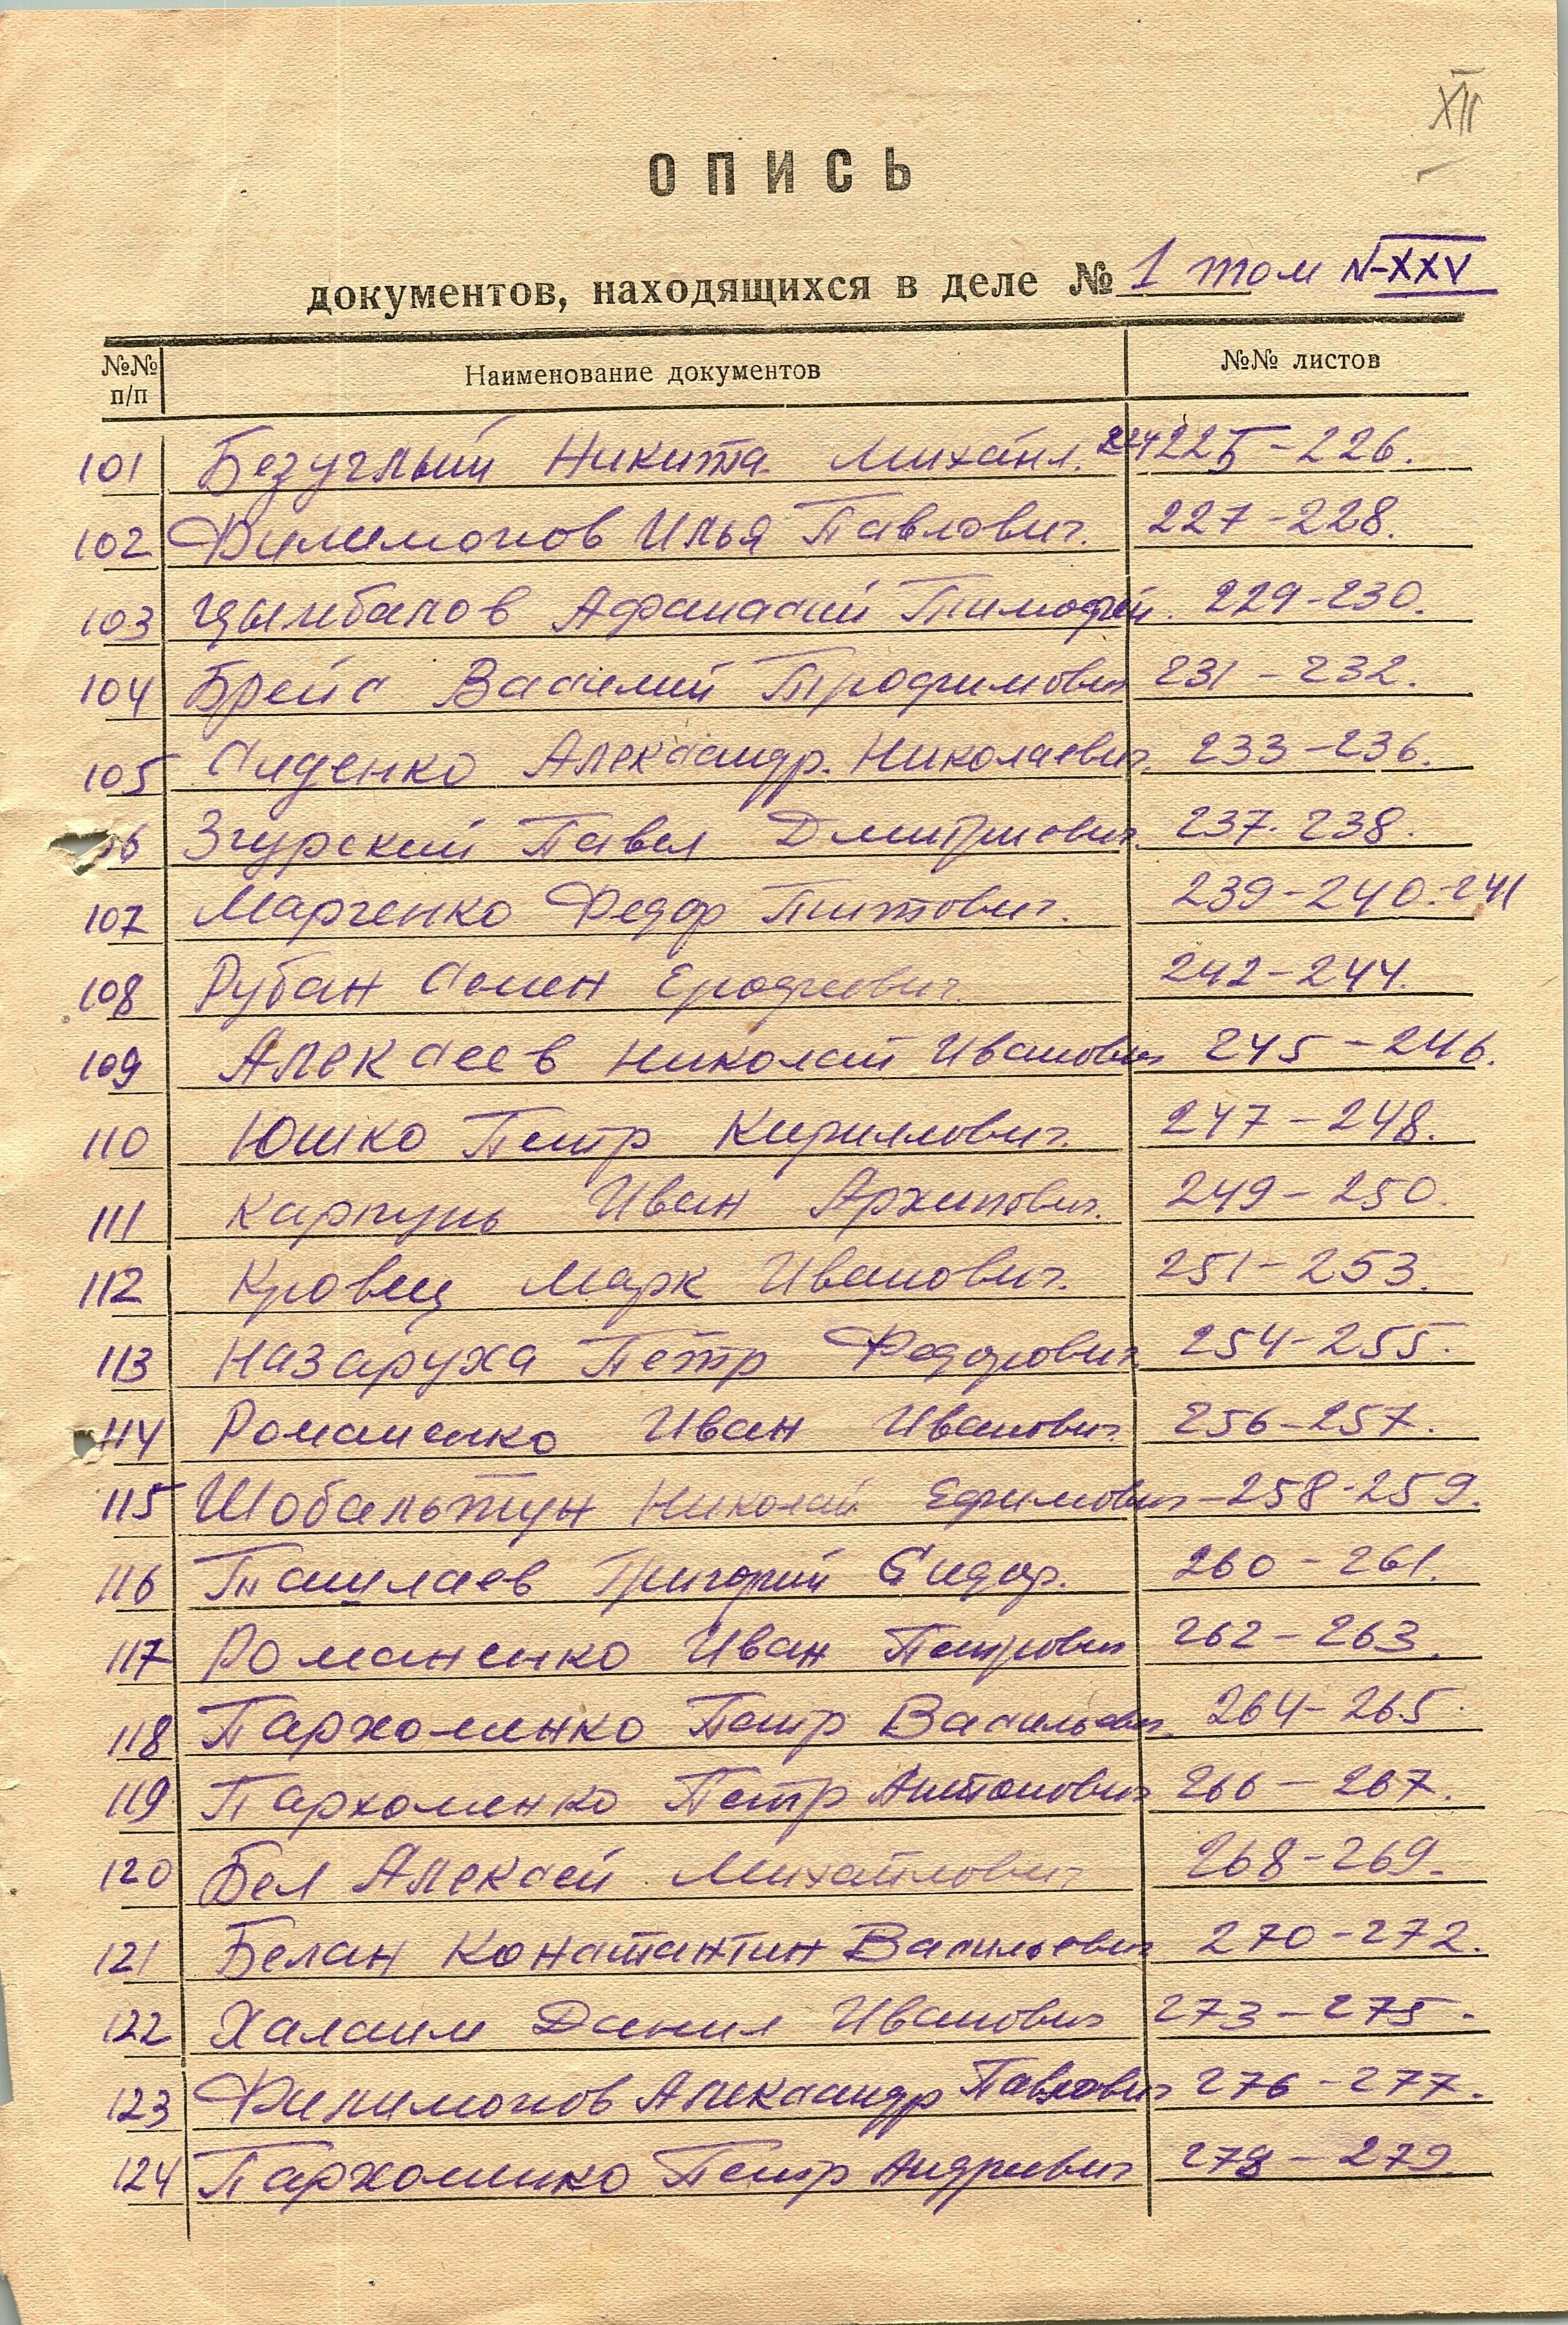 XII
ОПИСЬ
документов, находящихся в деле № 1 том N-XXV
№№ п/п Наименование документов №№ листов
101 Безуглый Никита Михайл. 224 225-226.
102 Филимонов Илья Павлович. 227-228.
103 Цымбалов Афанасий Тимофей. 229-230.
104 Брейс Василий Трофимович 231-232.
105 Сиденко Александр. Николаевич. 233-236.
6 Згурский Павел Дмитриевич. 237-238.
107 Марченко Федор Титович. 239-240.-241
108 Рубан Семен Ерофеевич. 242-244.
109 Алексеев Николай Иванович 245-246.
110 Юшко Петр Кириллович. 247-248.
111 Карпунь Иван Архипович. 249-250.
112 Кровец Марк Иванович. 251-253.
113 Назаруха Петр Федорович. 254-255.
114 Романенко Иван Иванович. 256-257.
115 Шобальтун Николай Ефимович-258-259.
116 Ташлаев Григорий Сидор. 260-261.
117 Романенко Иван Петрович 262-263.
118 Пархоменко Петр Васильевич. 264-265.
119 Пархоменко Петр Антонович 266-267.
120 Бел Алексей Михайлович 268-269.
121 Белан Константин Васильевич 270-272.
122 Халаим Данил Иванович 273-275.
123 Филимонов Александр Павлович 276-277.
124 Пархоменко Петр Андреевич 278-279.